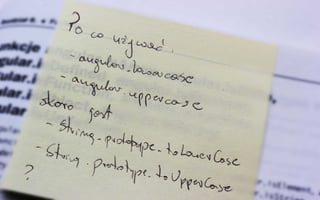 Po co używać:
- angular.lowercase
- angular.uppercase
skoro jest
- String.prototype.toLowerCase
- String.prototype.toUpperCase
?